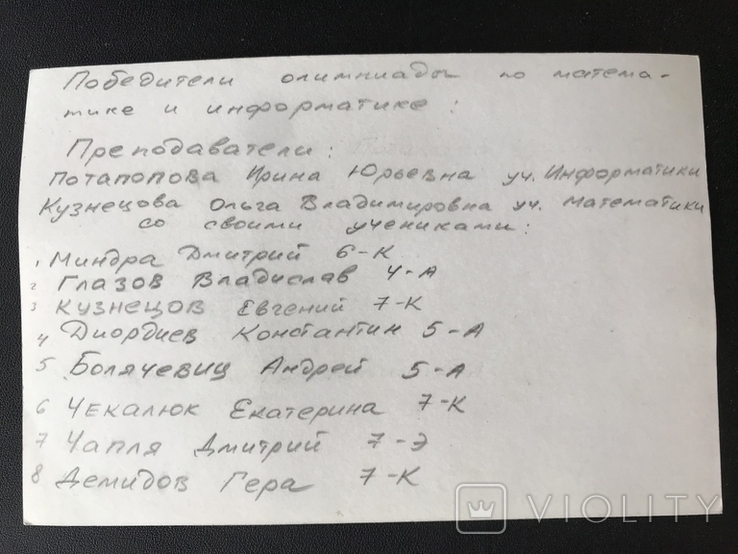 Победители олимпиады по матема-
тике и информатике:
Преподаватели:
Потапопова Ирина Юрьевна уч. Информатики
Кузнецова Ольга Владимировна уч. Математики
со своими учениками:
1 Миндра Дмитрий 6-К
2 Глазов Владислав 4-А
3 Кузнецов Евгений 7-К
4 Диордиев Константин 5-А
5 Болячевиц Андрей 5-А
6 Чекалюк Екатерина 7-К
7 Чапля Дмитрий 7-Э
8 Демидов Гера 7-К
VIOLITY